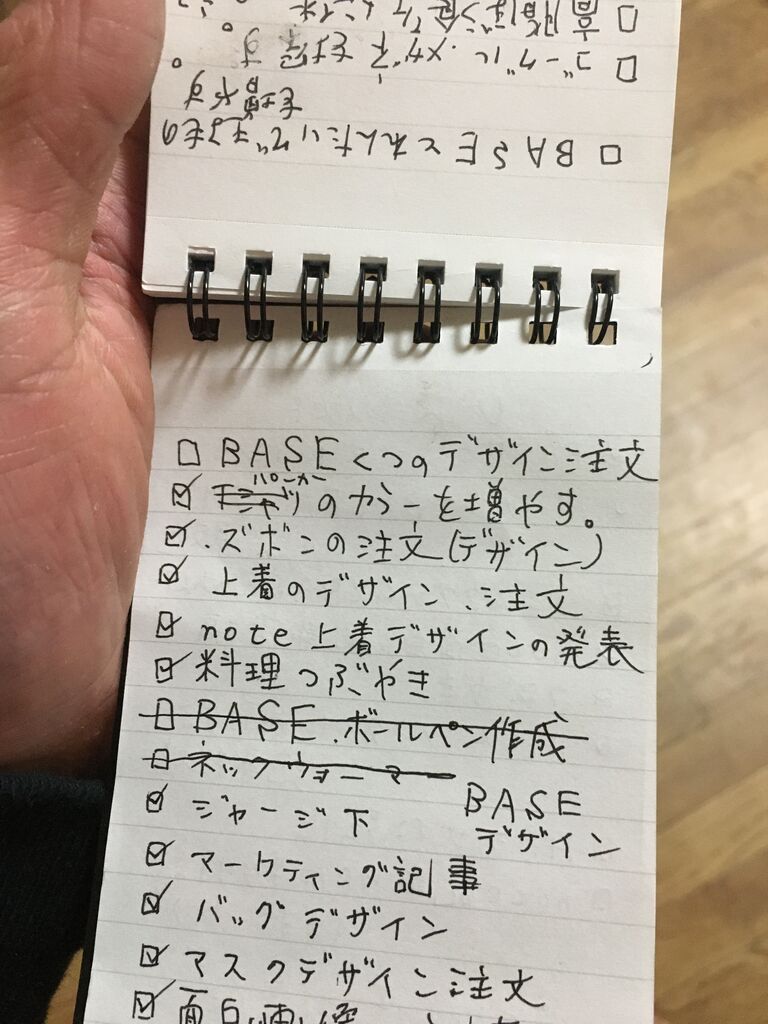 □ BASEとれんたいでデるもの
を増やす
□ ゴーグル.メガネを
□ BASEくつのデザイン注文
☑ パーカー
のカラーを増やす。
☑ .ズボンの注文(デザイン)
☑ 上着のデザイン.注文
☑ note上着デザインの発表
☑ 料理つぶやき
□ BASE.ボールペン作成
□ ネックウォーマー
☑ ジャージ下 BASE
デザイン
☑ マーケティング記事
☑ バッグデザイン
☑ マスクデザイン注文
☑ 面白